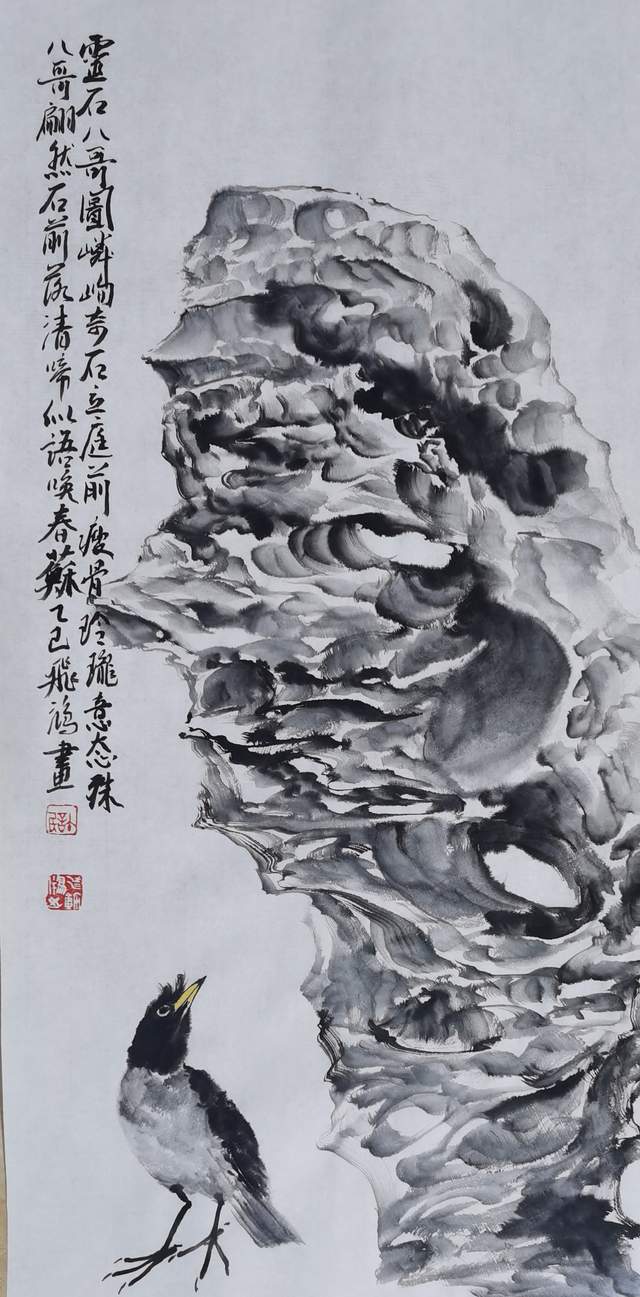 靈石八哥圖嶙峋奇石立庭前瘦骨玲瓏意态殊
八哥翩然石前落清啼似語喚春蘇乙巳飛鴻畫